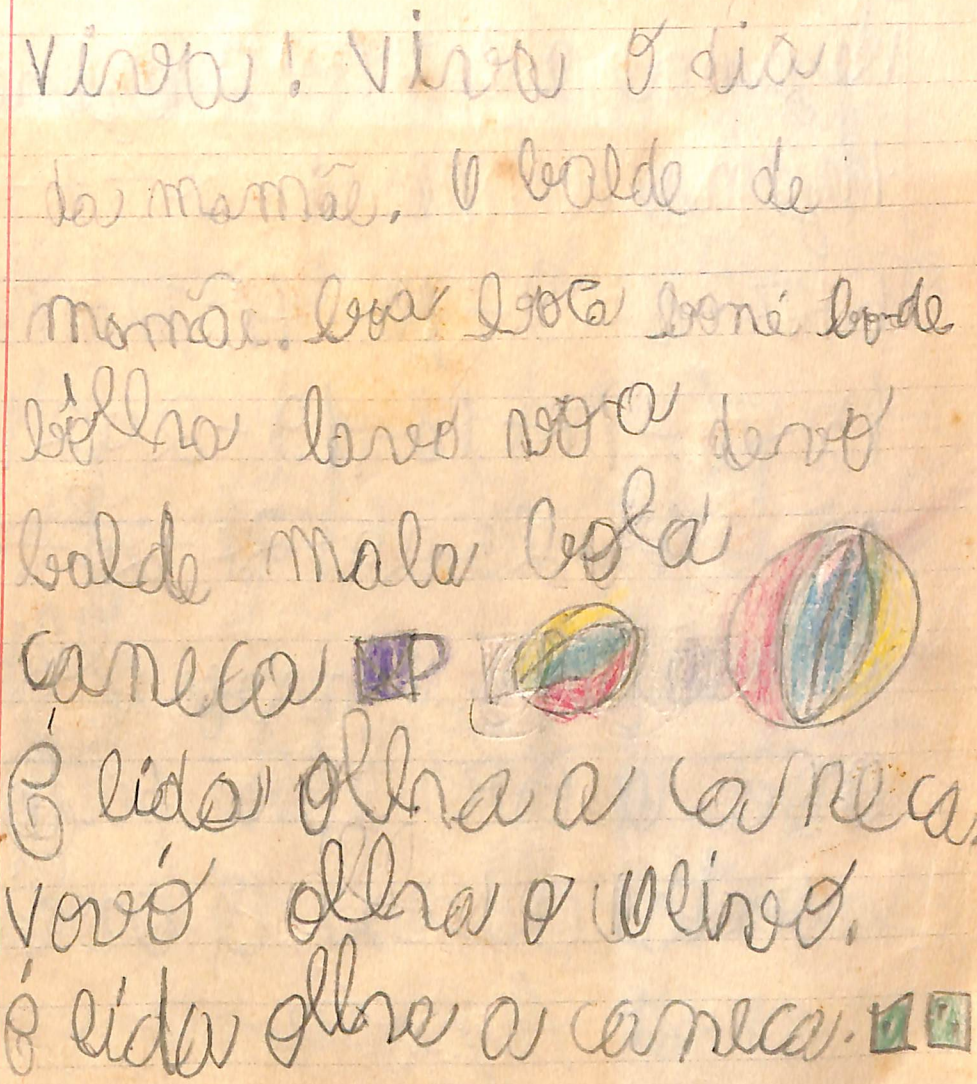 Viva! Viva o dia
da mamãe. O balde de
mamãe. boa boca boné bode
bôlha lavo voa devo
balde mala bola
caneca
É lida olha a caneca.
vovó olha o Olivo.
é lida olha a caneca.